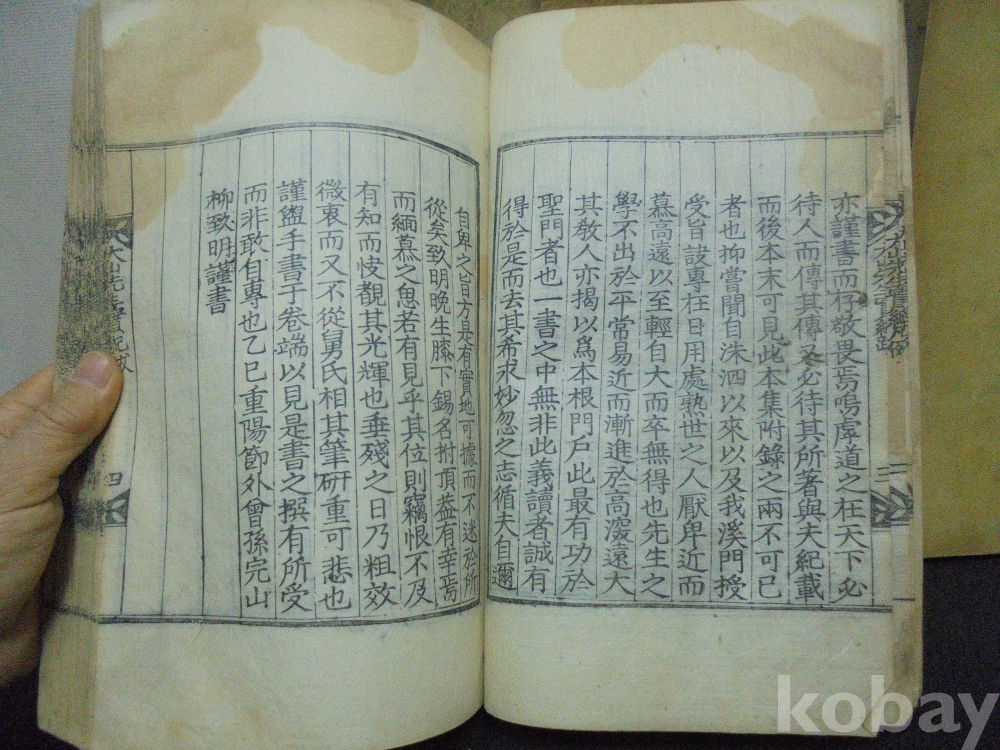 亦謹書而存敬畏焉嗚虖道之在天下必
待人而傳其傳又必待其所著與夫紀載
而後本末可見此本集附錄之兩不可已
者也抑嘗聞自洙泗以來以及我溪門授
受旨訣專在日用處熟世之人厭卑近而
慕高遠以至輕自大而卒無得也先生之
學不出於平常易近而漸進於高深遠大
其敎人亦揭以爲本根門戶此最有功於
聖門者也一書之中無非此義讀者誠有
得於是而去其希求妙忽之志循夫自邇
自卑之旨方是有實地可據而不迷於所
從矣致明晚生膝下錫名拊頂益有幸焉
而緬慕之思若有見乎其位則竊恨不及
有知而快覩其光輝也垂殘之日乃粗效
微衷而又不從舅氏相其筆硏重可悲也
謹盥手書于卷端以見是書之撰有所受
而非敢自專也乙巳重陽節外曾孫完山
柳致明謹書
四
kobay